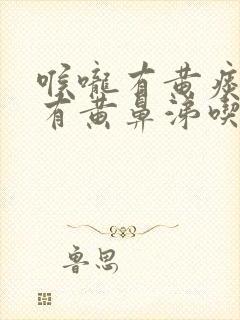 喉嚨有黃痰
有黃鼻涕喫
魯思